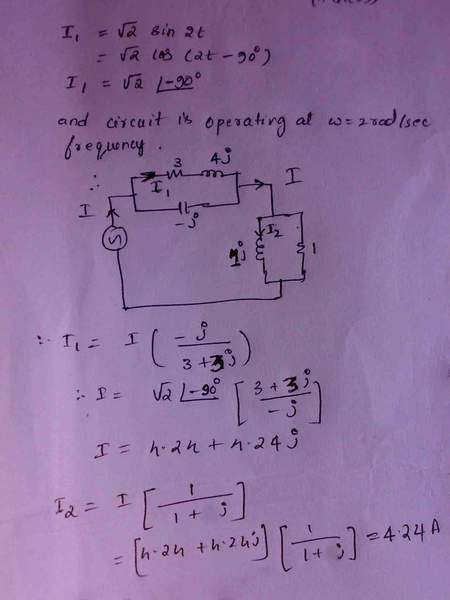 I₁ = √2 sin 2t
= √2 cos (2t - 90°)
I₁ = √2 ∠-90°
and circuit is operating at ω = 2 rad/sec
frequency.
∴
3 4j
I₁ I
I -j
I₂
1j 1
∴ I₁ = I ( -j / 3+3j )
∴ I = √2 ∠-90° [ 3+3j / -j ]
I = 4.24 + 4.24j
I₂ = I [ 1 / 1+j ]
= [4.24 + 4.24j] [ 1 / 1+j ] = 4.24 A